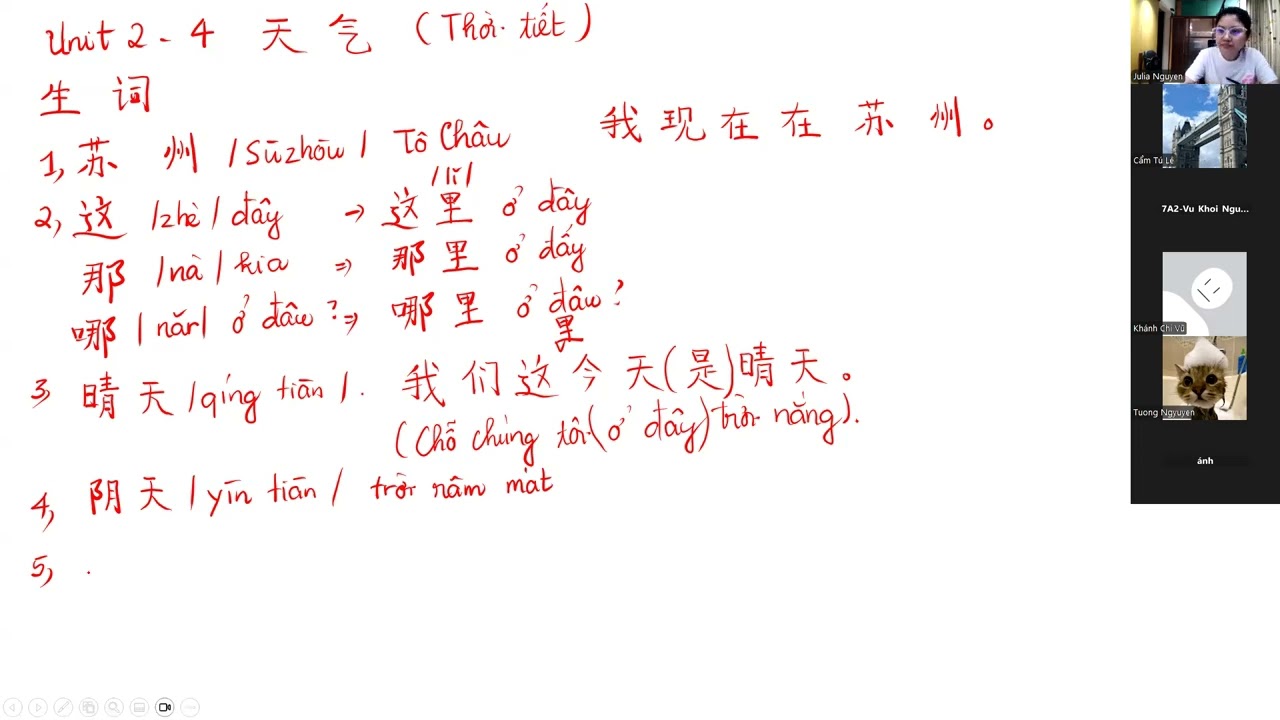 Unit 2 - 4 天气 (Thời tiết)
生词
1, 苏州 /Sūzhōu/ Tô Châu
我现在在苏州。
/lǐ/
2, 这 /zhè/ đây → 这里 ở đây
那 /nà/ kia ⇒ 那里 ở đấy
哪 /nǎr/ ở đâu? ⇒ 哪里 ở đâu?
里
3, 晴天 /qíng tiān/. 我们这今天(是)晴天。
(Chỗ chúng tôi (ở đây) trời nắng).
4, 阴天 /yīn tiān/ trời râm mát
5, .
Julia Nguyen
Cẩm Tú Lê
7A2-Vu Khoi Ngu...
Khánh Chi Vũ
Tuong Ngyuyen
ánh